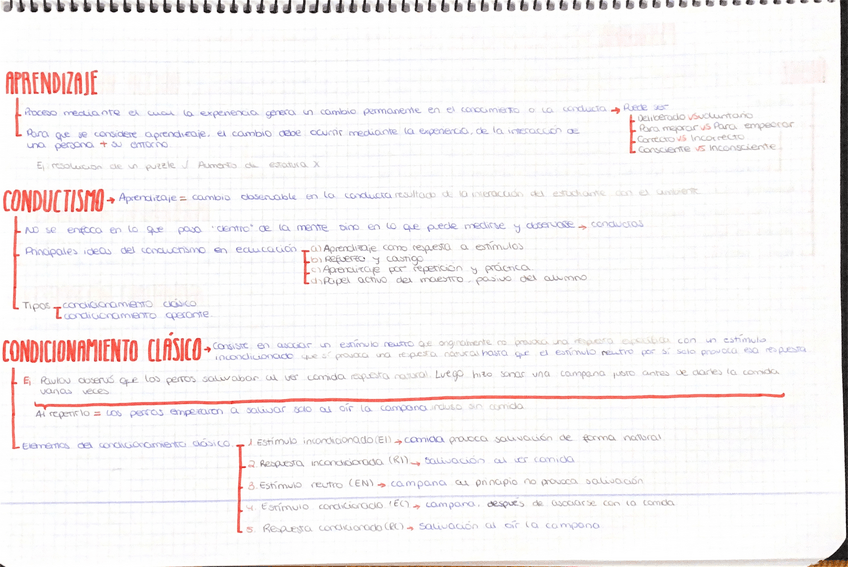 APRENDIZAJE
Proceso mediante el cual la experiencia genera un cambio permanente en el conocimiento o la conducta → Puede ser
deliberado vs involuntario
Para mejorar vs Para empeorar
Correcto vs Incorrecto
Consciente vs Inconsciente
Para que se considere aprendizaje, el cambio debe ocurrir mediante la experiencia, de la interacción de
una persona + su entorno
Ej resolución de un puzzle ✓ Aumento de estatura X
CONDUCTISMO → Aprendizaje = cambio observable en la conducta resultado de la interacción del estudiante con el ambiente
No se enfoca en lo que pasa "dentro" de la mente sino en lo que puede medirse y observarse → conductas
Principales ideas del conductismo en educación
a) Aprendizaje como respuesta a estímulos
b) Refuerzo y castigo
c) Aprendizaje por repetición y práctica
d) Papel activo del maestro, pasivo del alumno
Tipos
condicionamiento clásico
condicionamiento operante
CONDICIONAMIENTO CLÁSICO → Consiste en asociar un estímulo neutro que originalmente no provoca una respuesta con un estímulo
incondicionado que sí provoca una respuesta natural hasta que el estímulo neutro por sí solo provoca esa respuesta
Ej Pavlov observó que los perros salivaban al ver comida respuesta natural. Luego hizo sonar una campana justo antes de darles la comida
varias veces
Al repetirlo = Los perros empezaron a salivar solo al oír la campana incluso sin comida
Elementos del condicionamiento clásico
1. Estímulo incondicionado (EI) → comida provoca salivación de forma natural
2. Respuesta incondicionada (RI) → salivación al ver comida
3. Estímulo neutro (EN) → campana al principio no provoca salivación
4. Estímulo condicionado (EC) → campana, después de asociarse con la comida
5. Respuesta condicionada (RC) → salivación al oír la campana